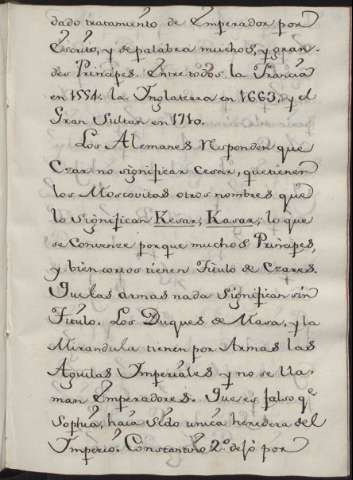 dado tratamiento de Emperador por
Escrito, y de palabra muchos, y gran-
des Principes. Entre todos la Francia
en 1554. la Inglaterra en 1663, y el
Gran Sultan en 1710.
Los Alemanes responden que
Czar no significa Cesar, que tienen
los Moscovitas otros nombres que
lo significan Kesar, Kasar; lo que
se convenze porque muchos Principes,
y bien cortos tienen Titulo de Czares.
Que las armas nada significan sin
Titulo. Los Duques de Masa, y la
Mirandula tienen por Armas las
Aguilas Imperiales y no se lla-
man Emperadores. Que es falso qe.
Sophia, havia sido unica heredera del
Imperio. Constantino 2º. dejó por